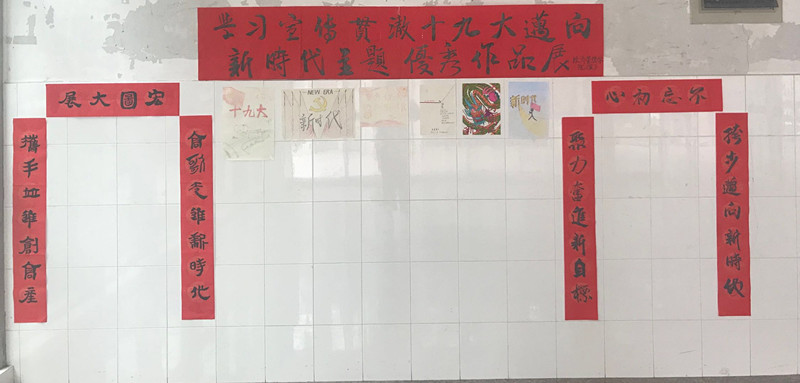 学习宣传贯澈十九大邁向
新時代主題優秀作品展
宏圖大展
不忘初心
十九大
NEW ERA
新时代
新时代
跨步邁向新時代
聚力奮進新目標
時代
攜手並 創高產